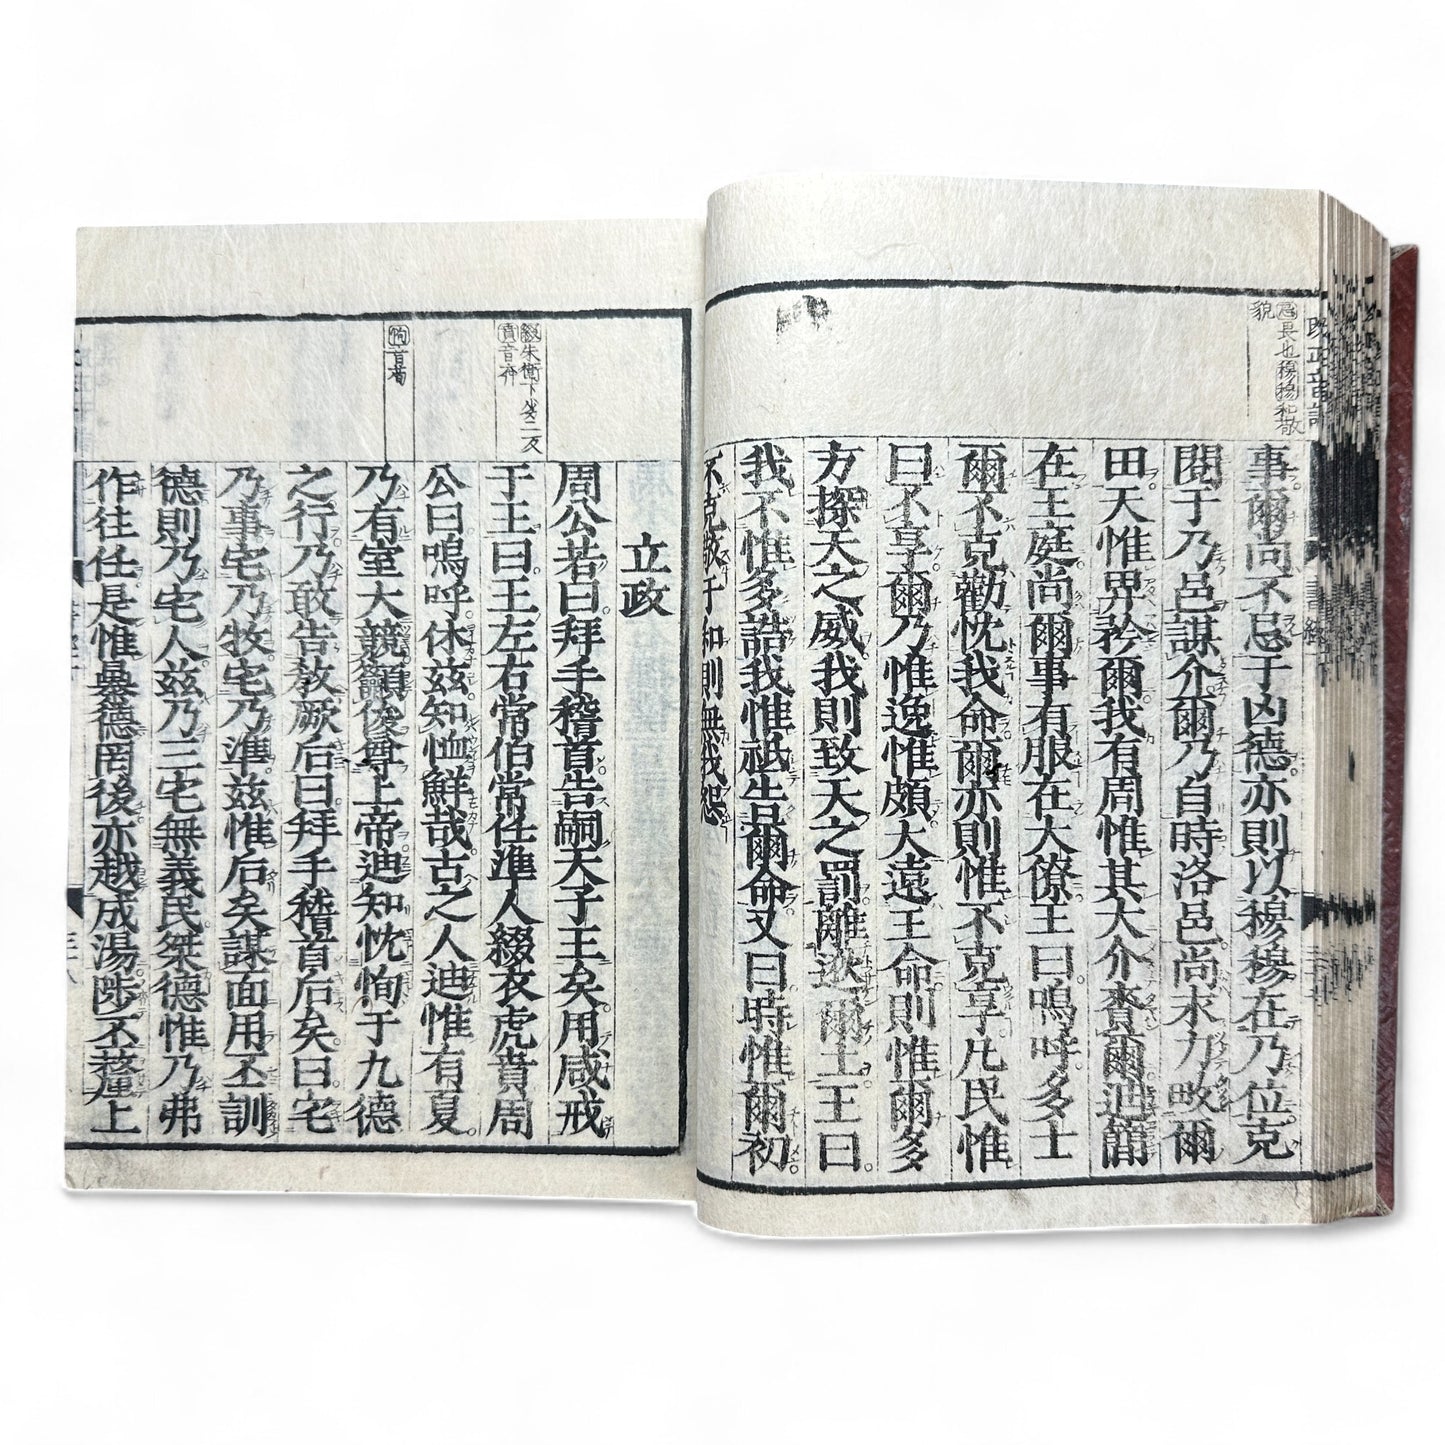 君長也穆穆和敬
貌
事爾尚不忌于凶德亦則以穆穆在乃位克
閱于乃邑謀介爾乃自時洛邑尚永力畋爾
田天惟畀矜爾我有周惟其大介賚爾迪簡
在王庭尚爾事有服在大僚王曰嗚呼多士
爾不克勸忱我命爾亦則惟不克享凡民惟
曰不享爾乃惟逸惟頗大遠王命則惟爾多
方探天之威我則致天之罰離逖爾土王曰
我不惟多誥我惟祗告爾命又曰時惟爾初
不克敬于和則無我怨
綴朱衛下劣二反
賁音奔
恂音荀
立政
周公若曰拜手稽首告嗣天子王矣用咸戒
于王曰王左右常伯常任準人綴衣虎賁周
公曰嗚呼休茲知恤鮮哉古之人迪惟有夏
乃有室大競籲俊尊上帝迪知忱恂于九德
之行乃敢告敎厥后曰拜手稽首后矣曰宅
乃事宅乃牧宅乃準茲惟后矣謀面用丕訓
德則乃宅人茲乃三宅無義民桀德惟乃弗
作往任是惟暴德罔後亦越成湯陟丕釐上